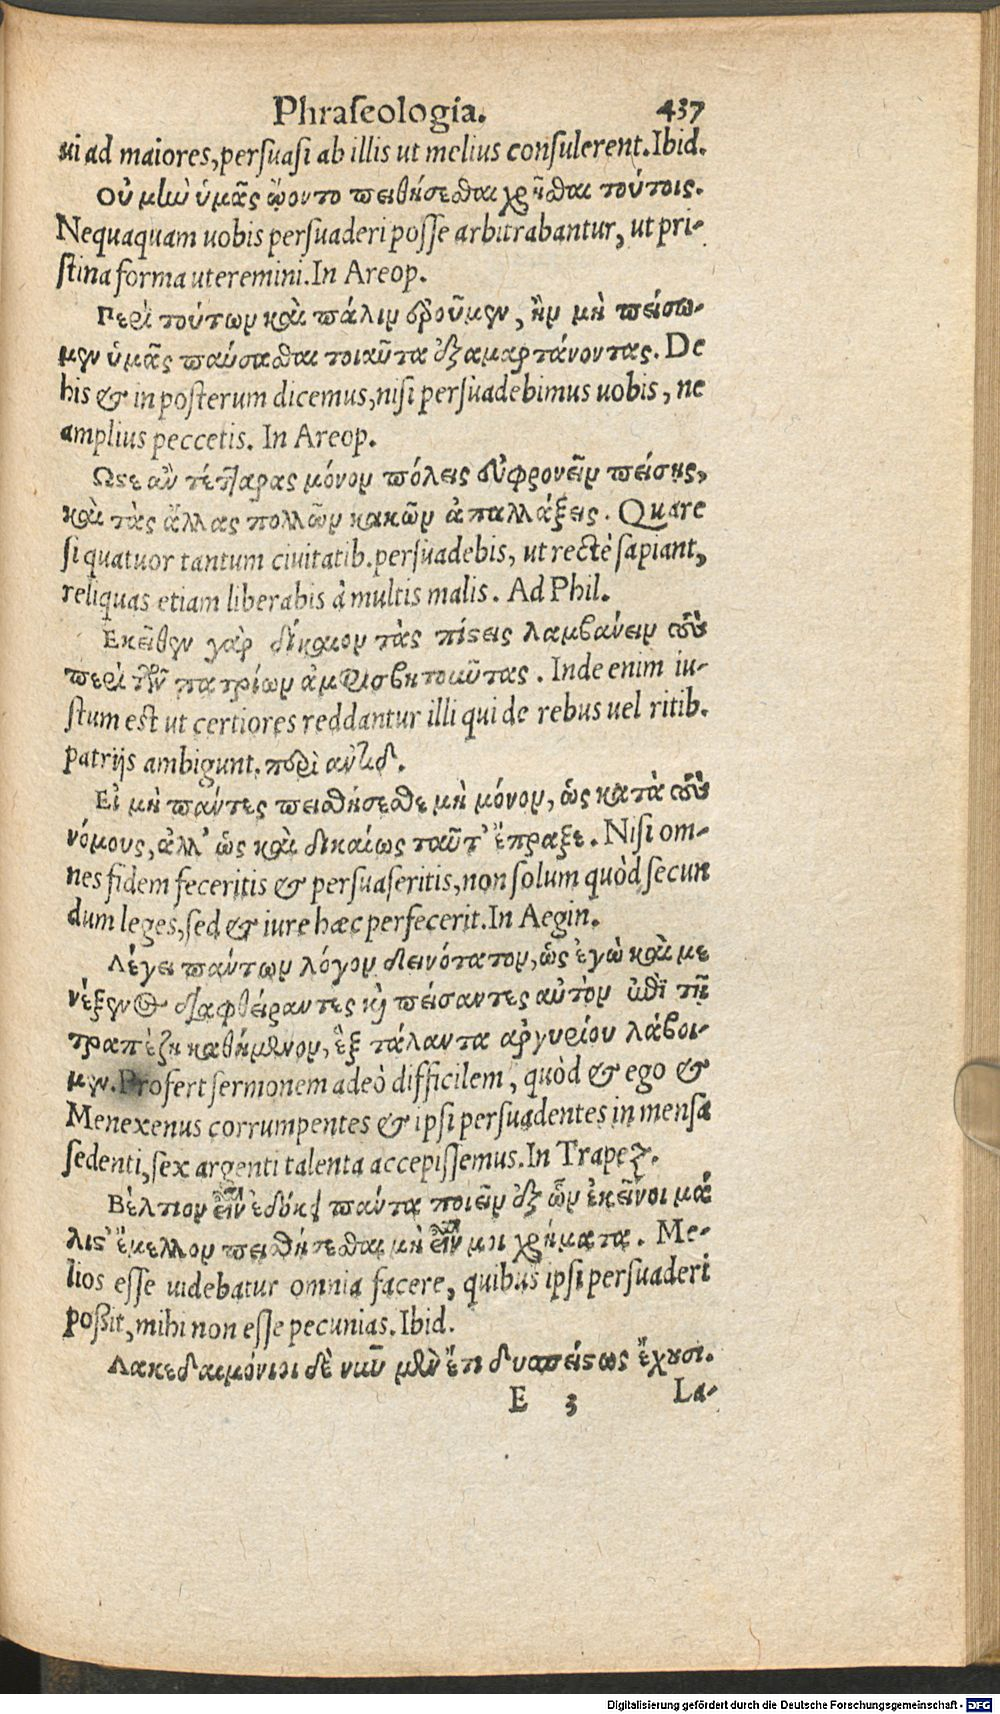 Phraſeologia. 437
ui ad maiores, perſuaſi ab illis ut melius conſulerent. Ibid.
Οὐ μὴν ὑμᾶς ᾤοντο πειθήσεσθαι χρῆσθαι τούτοις.
Nequaquam uobis perſuaderi poſſe arbitrabantur, ut pri-
ſtina forma uteremini. In Areop.
Περὶ τούτων καὶ πάλιν ἐροῦμεν, ἢν μὴ πείσω-
μεν ὑμᾶς παύσασθαι τοιαῦτα ἐξαμαρτάνοντας. De
his & in poſterum dicemus, niſi perſuadebimus uobis, ne
amplius peccetis. In Areop.
Ωστε ἂν τέτταρας μόνον πόλεις εὐφρονεῖν πείσῃς,
καὶ τὰς ἄλλας πολλῶν κακῶν ἀπαλλάξεις. Quare
ſi quatuor tantum ciuitatib. perſuadebis, ut rectè ſapiant,
reliquas etiam liberabis à multis malis. Ad Phil.
Εκεῖθεν γὰρ δίκαιον τὰς πίστεις λαμβάνειν τοὺς
περὶ τῶν πατρίων ἀμφισβητοῦντας. Inde enim iu-
ſtum eſt ut certiores reddantur illi qui de rebus uel ritib.
patrijs ambigunt. περὶ ἀντιδ.
Εἰ μὴ πάντες πεισθήσεσθε μὴ μόνον, ὡς κατὰ τοὺς
νόμους, ἀλλ' ὡς καὶ δικαίως ταῦτ' ἔπραξε. Niſi om-
nes fidem feceritis & perſuaſeritis, non ſolum quòd ſecun
dum leges, ſed & iure hæc perfecerit. In Aegin.
Λέγει πάντων λόγον δεινότατον, ὡς ἐγὼ καὶ με
νέξενος διαφθείραντες καὶ πείσαντες αὐτὸν ἐπὶ τῇ
τραπέζῃ καθήμενον, ἓξ τάλαντα ἀργυρίου λάβοι-
μεν. Profert ſermonem adeò difficilem, quòd & ego &
Menexenus corrumpentes & ipſi perſuadentes in menſa
ſedenti, ſex argenti talenta accepiſſemus. In Trapez.
Βέλτιον εἶναι ἐδόκει πάντα ποιεῖν ἐξ ὧν ἐκεῖνοι μά
λιστ' ἔμελλον πεισθήσεσθαι μὴ εἶναι μοι χρήματα. Me-
lios eſſe uidebatur omnia facere, quibus ipſi perſuaderi
poßit, mihi non eſſe pecunias. Ibid.
Λακεδαιμόνιοι δὲ νῦν μὲν ἔτι δυσπείστως ἔχουσι.
E 3 La-
Digitalisierung gefördert durch die Deutsche Forschungsgemeinschaft - DFG